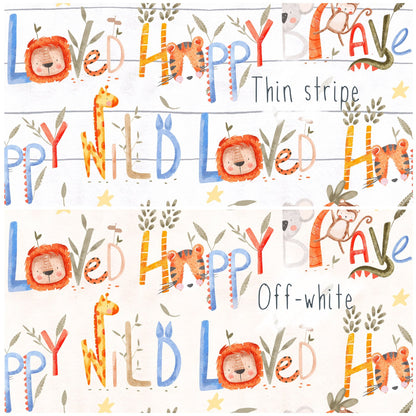 LOVeD HAPPY BRAVe
Thin stripe
PPY WiLD LOVeD HA
LOVeD HAPPY BRAVe
Off-white
PPY WiLD LOVeD HA